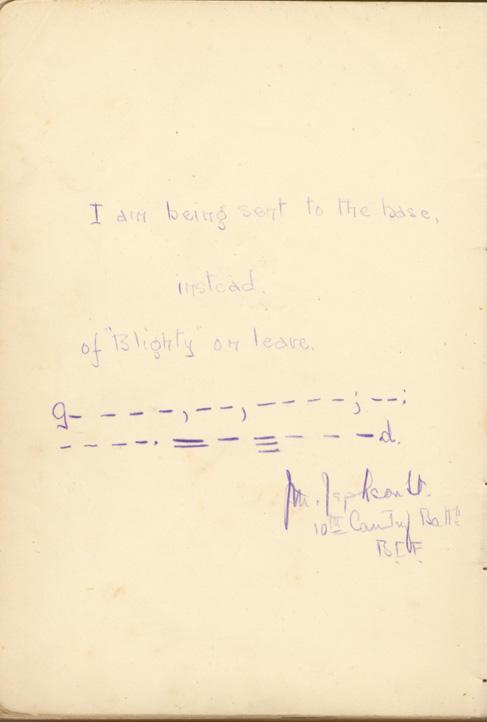 I am being sent to the base,
instead.
of "Blighty" on leave.
g- - - - -, - -, - - - - - ; - - :
- - - - . = - ≡ - - - -d.
10th Can Inf Battn
B.E.F.